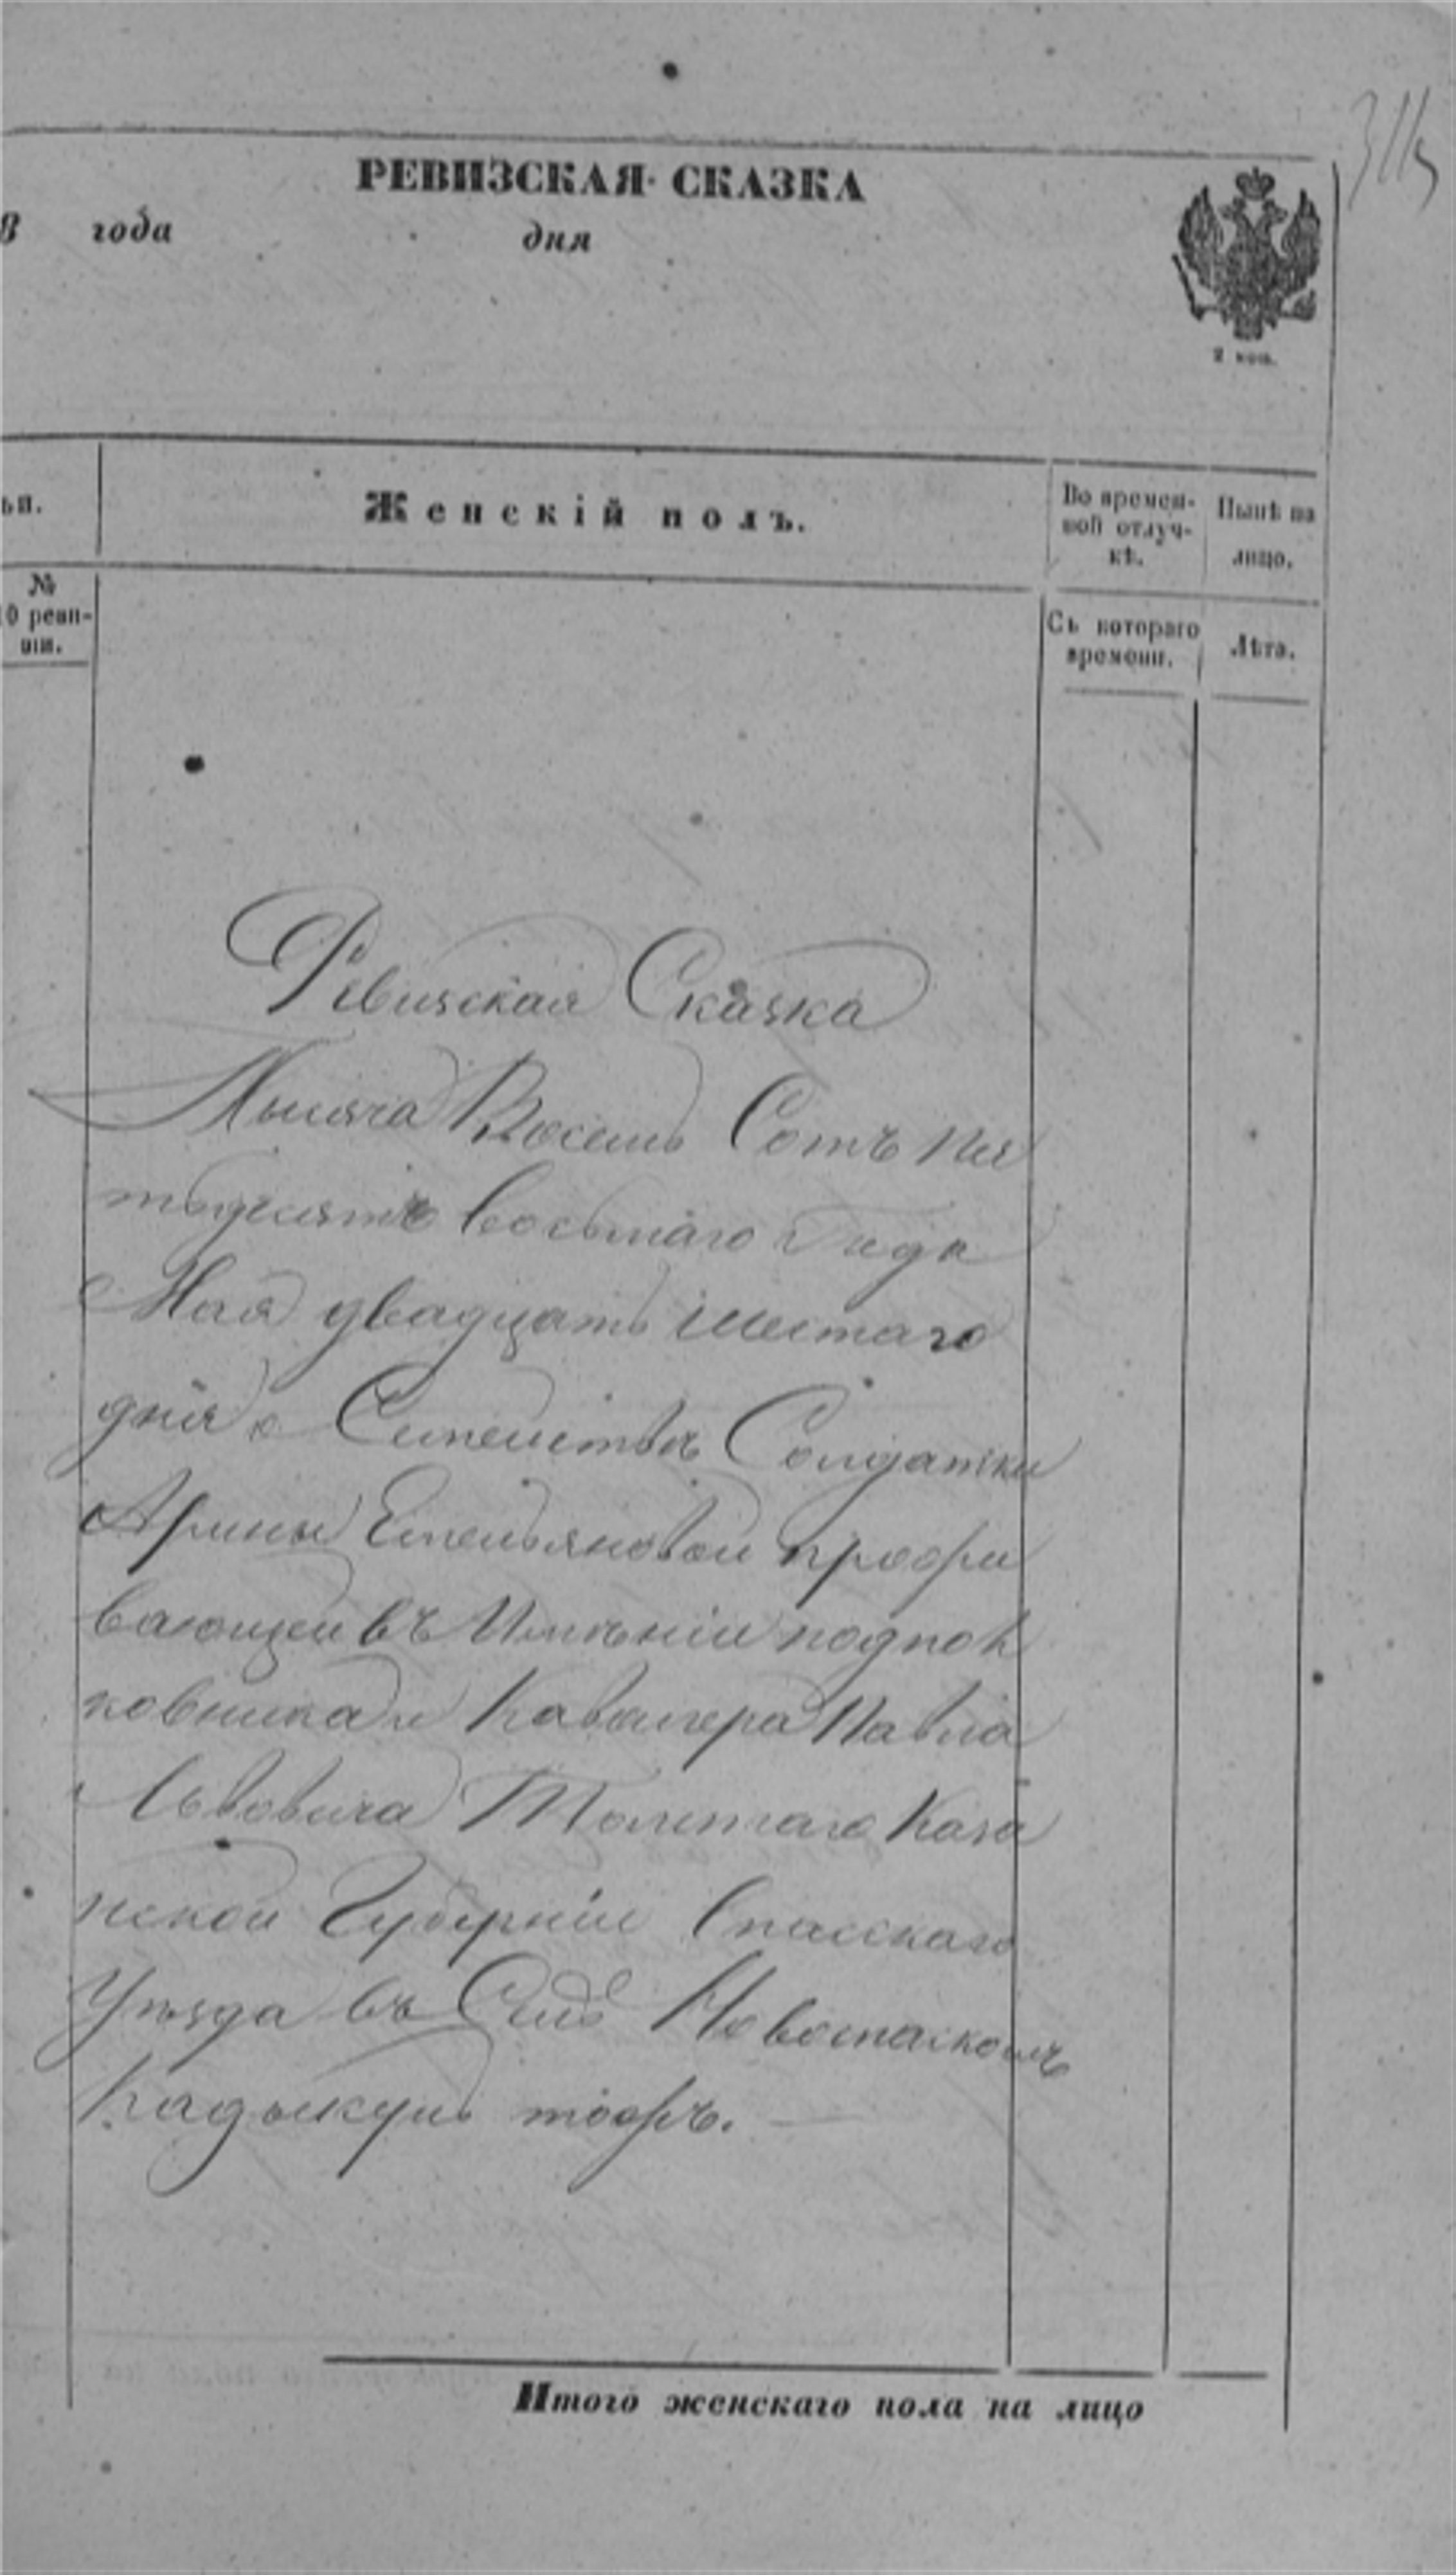 315
РЕВИЗСКАЯ СКАЗКА
8 года дня
2 коп.
ьи.
Женскій полъ.
Во времен-
ной отлуч-
кѣ.
Нынѣ на
лицо.
№
10 реви-
зіи.
Съ котораго
времени.
Лѣта.
Ревизская Сказка
Тысяча Восемь Сотъ пя
тьдесятъ восьмаго Года
Мая двадцать шестаго
дня о Семействѣ Солдатки
Арины Емельяновой прожи
вающей въ Имѣніи подпол
ковника и Кавалера Павла
Львовича Толстаго Каза
нской Губерніи Спасскаго
Уѣзда въ Селѣ Новоспаскомъ
тожъ.
Итого женскаго пола на лицо